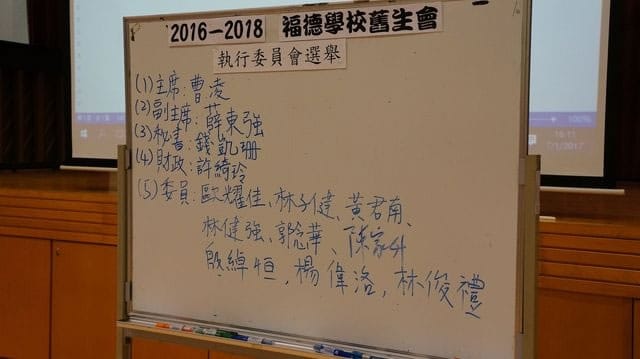 2016－2018 福德學校舊生會
執行委員會選舉
(1)主席:曹凌
(2)副主席:薛東強
(3)秘書:錢凱珊
(4)財政:許綺玲
(5)委員:歐耀佳、林子健、黃君南、
林健強、郭志華、陳家
殷綽恒,楊偉洛,林俊禮
100%
16:11
7/1/2017